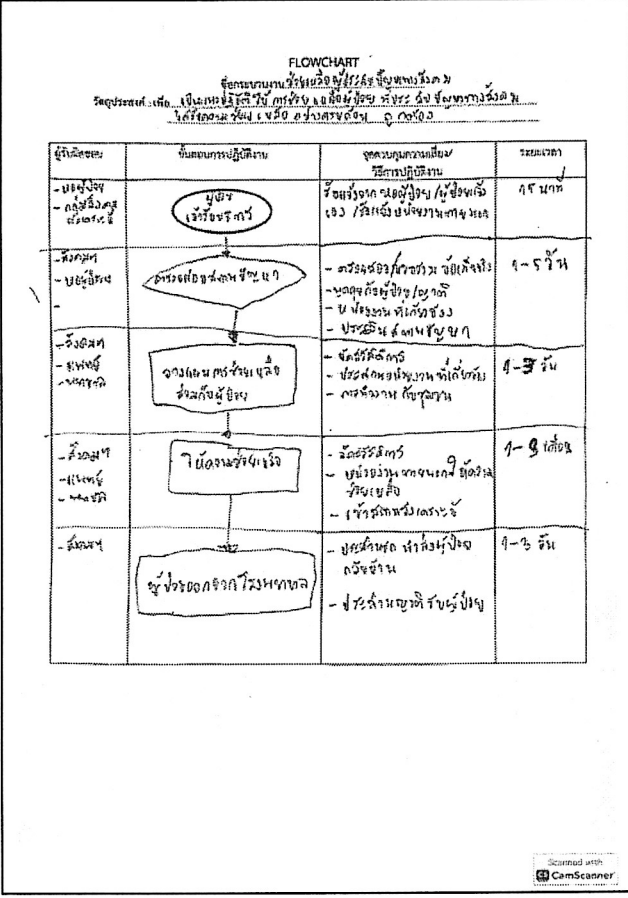 FLOWCHART
ชื่อกระบวนงาน ช่วยเหลือผู้ประสบปัญหาทางสังคม
วัตถุประสงค์ : เพื่อ เป็นแนวปฏิบัติให้ การช่วยเหลือผู้ป่วย ที่ประสบปัญหาทางสังคม
ได้รับความช่วยเหลือ อย่างครบถ้วน ถูกต้อง
ผู้รับผิดชอบ
ขั้นตอนการปฏิบัติงาน
จุดควบคุมความเสี่ยง/
วิธีการปฏิบัติงาน
ระยะเวลา
- หอผู้ป่วย
- กลุ่มสังคม
สงเคราะห์
ผู้ป่วย
เข้ารับบริการ
รับแจ้งจาก หอผู้ป่วย /ผู้ป่วยแจ้ง
เอง /รับแจ้งหน่วยงานภายนอก
15 นาที
- สังคมฯ
- หอผู้ป่วย
-
ตรวจสอบสภาพปัญหา
- ตรวจสอบ/รวบรวม ข้อเท็จจริง
- พูดคุยกับผู้ป่วย/ญาติ
- หน่วยงานที่เกี่ยวข้อง
- ประเมินสภาพปัญหา
1-5 วัน
- สังคมฯ
- แพทย์
วางแผนการช่วยเหลือ
ร่วมกับผู้ป่วย
- จัดสวัสดิการ
- ประสานหน่วยงานที่เกี่ยวข้อง
- การทำงาน กับชุมชน
1-3 วัน
- สังคมฯ
- แพทย์
ให้ความช่วยเหลือ
- จัดสวัสดิการ
- หน่วยงานภายนอกให้ความ
ช่วยเหลือ
- เข้าสถานสงเคราะห์
เดือน
- สังคมฯ
ผู้ป่วยออกจากโรงพยาบาล
- ประสานรถ นำส่งผู้ป่วย
กลับบ้าน
- ประสานญาติรับผู้ป่วย
1-3 วัน
Scanned with
CamScanner